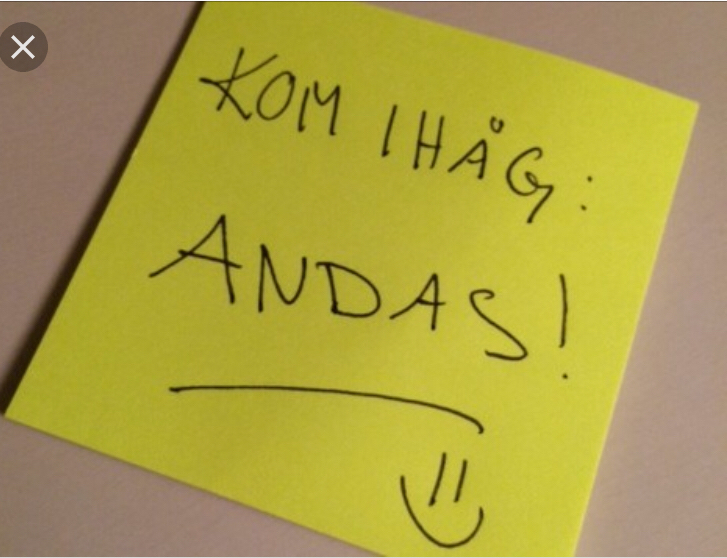 KOM IHÅG:
ANDAS!